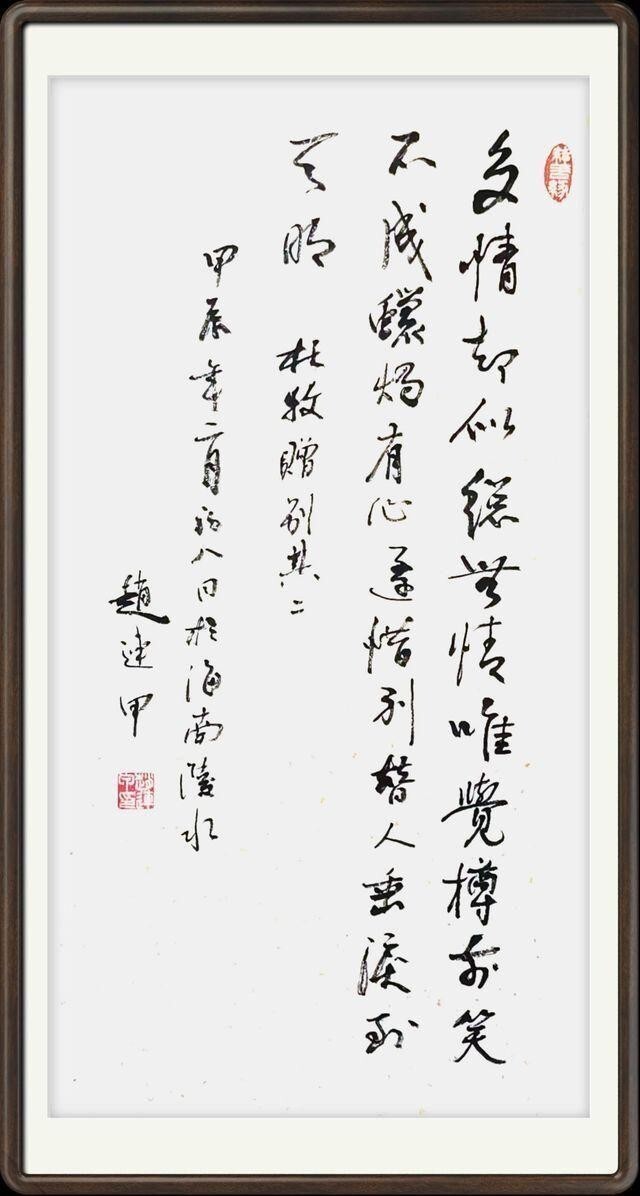 多情却似總無情唯覺樽前笑
不成蠟燭有心還惜别替人垂淚到
天明 杜牧贈别其二
甲辰年二月初八日於海南陵水
趙連甲